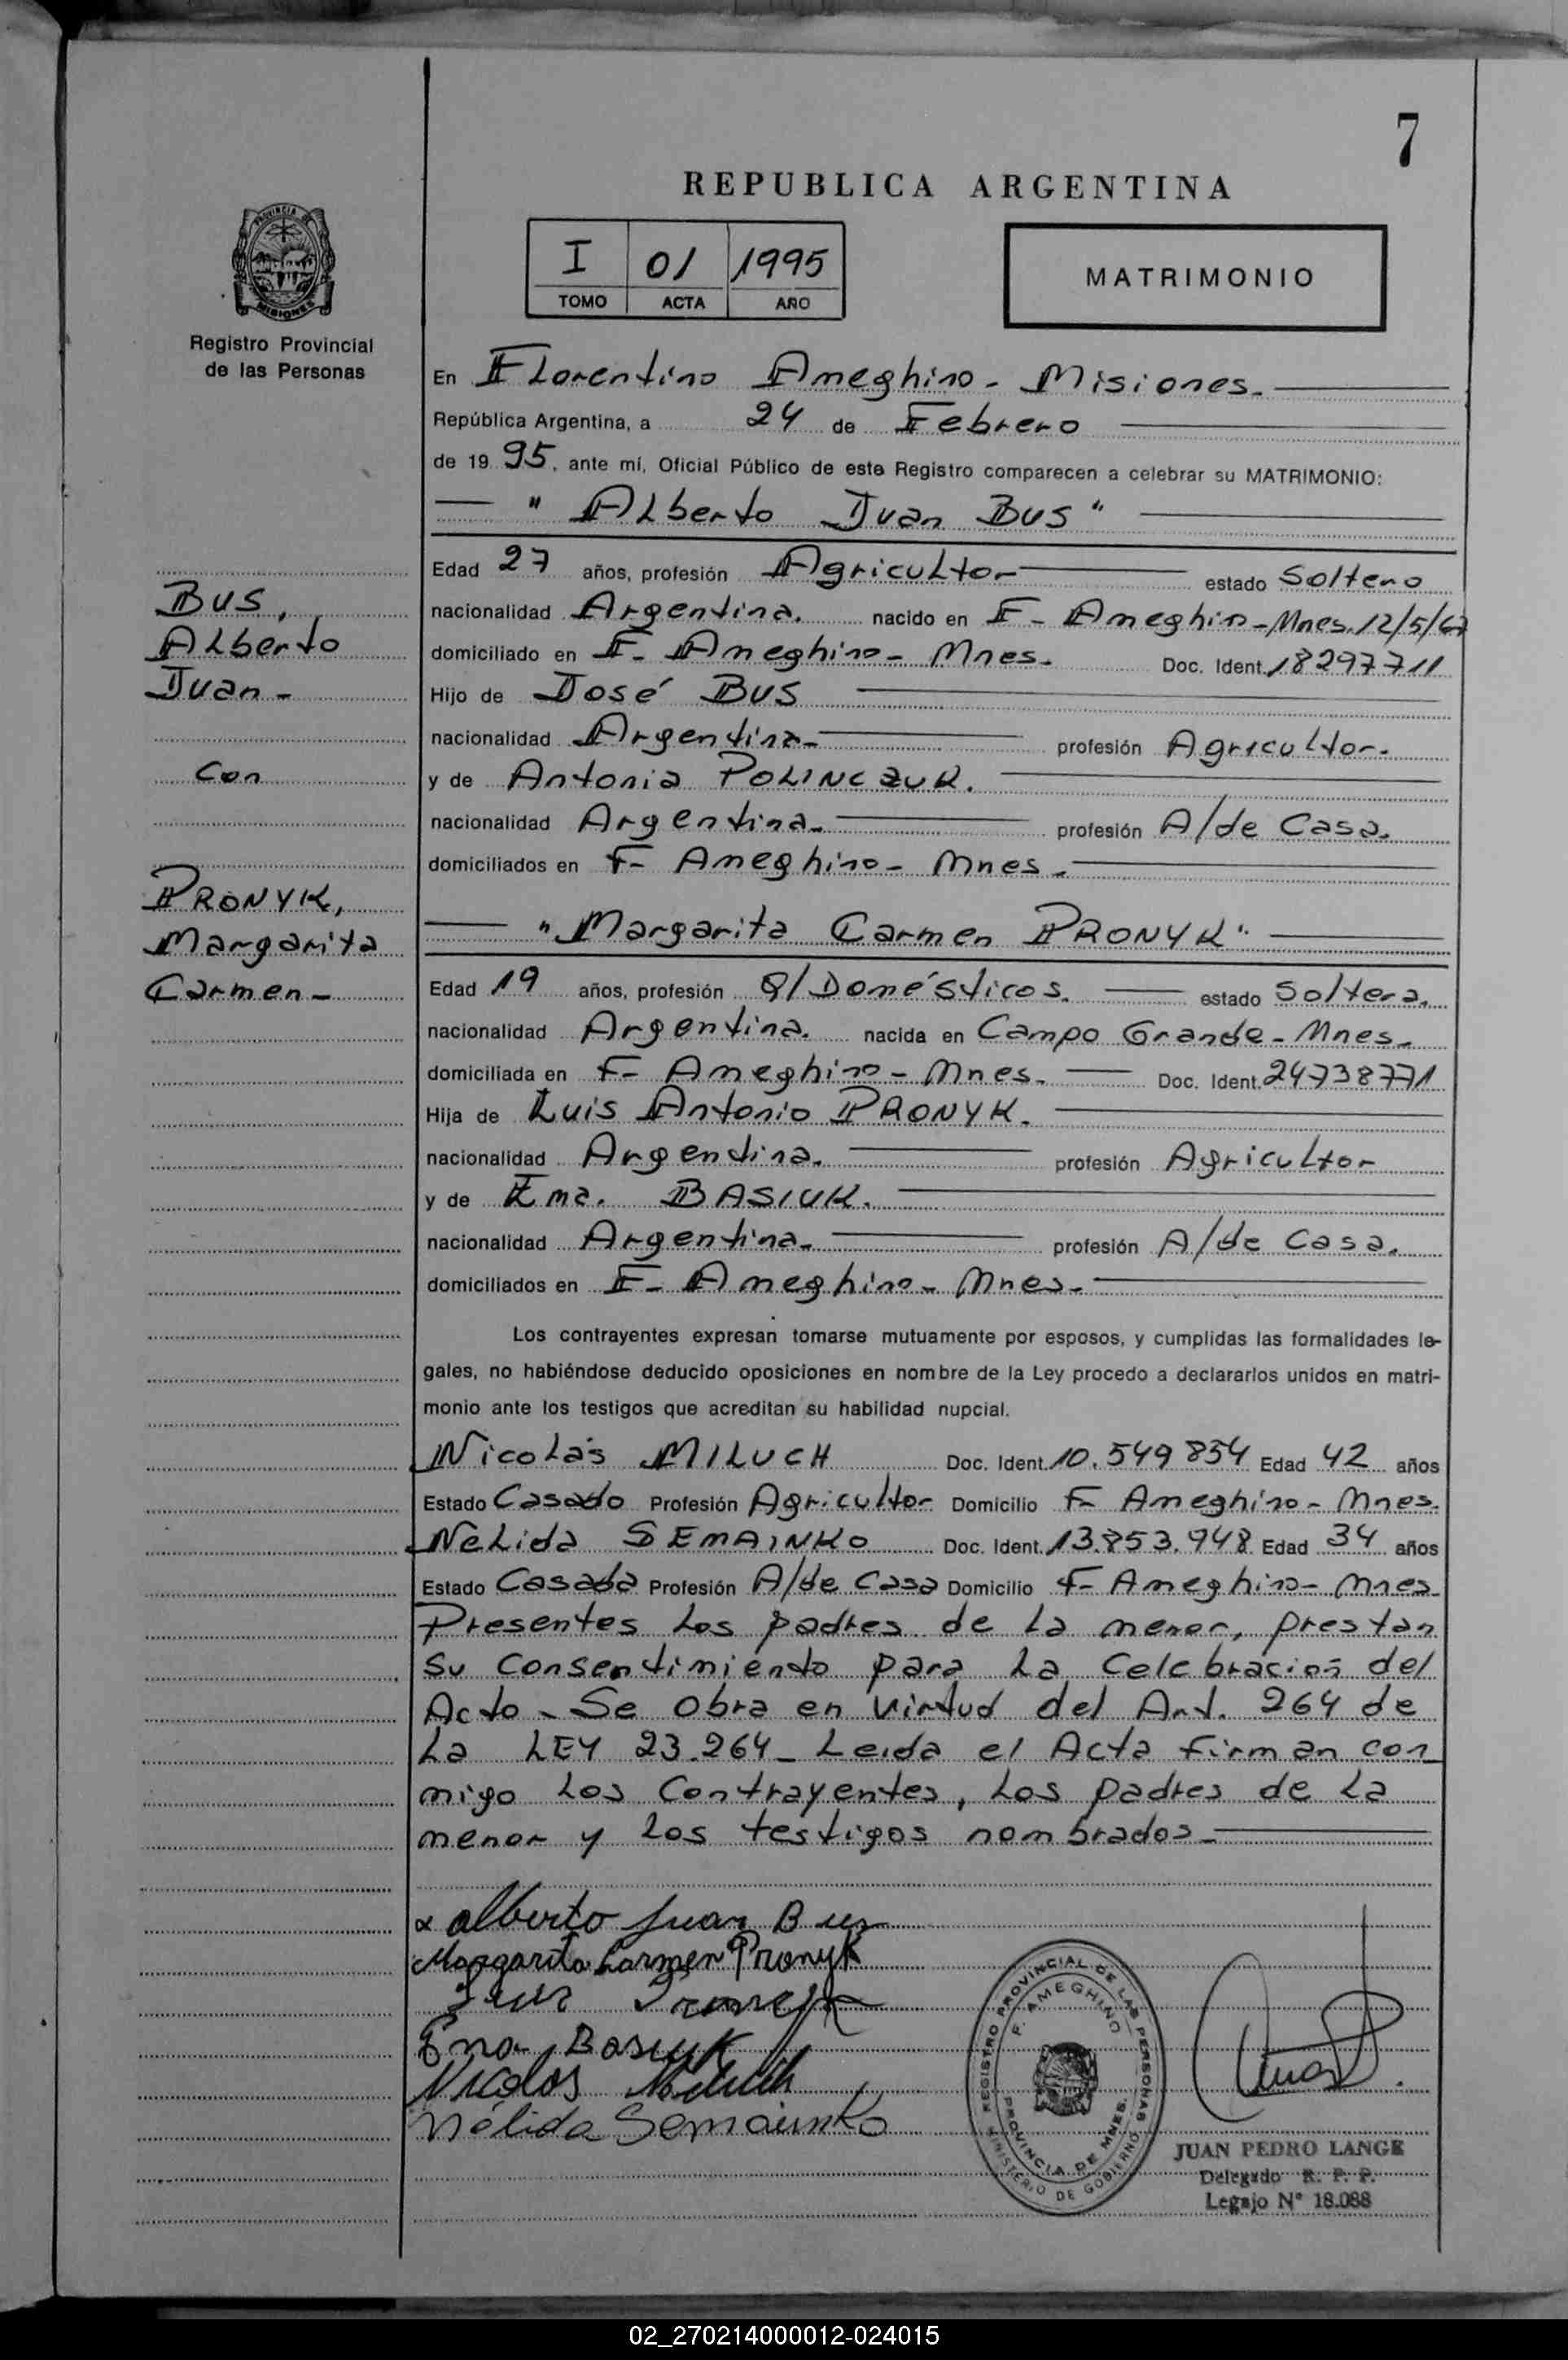 7
REPUBLICA ARGENTINA
I 01 1995
TOMO ACTA AÑO
MATRIMONIO
PROVINCIA DE
MISIONES
Registro Provincial
de las Personas
En Florentino Ameghino - Misiones.
República Argentina, a 24 de Febrero
de 1995, ante mí, Oficial Público de este Registro comparecen a celebrar su MATRIMONIO:
" Alberto Juan BUS "
Edad 27 años, profesión Agricultor estado Soltero
nacionalidad Argentina. nacido en F- Ameghin-Mnes. 12/5/67
domiciliado en F- Ameghino- Mnes. Doc. Ident. 18297711
Hijo de José BUS
nacionalidad Argentina- profesión Agricultor.
y de Antonia POLINCZUK.
nacionalidad Argentina- profesión A/de Casa.
domiciliados en F- Ameghino- Mnes.
"Margarita Carmen PRONYK"
Edad 19 años, profesión Q/Domésticos. estado Soltera.
nacionalidad Argentina. nacida en Campo Grande - Mnes.
domiciliada en F- Ameghino - Mnes. Doc. Ident. 24738771
Hija de Luis Antonio PRONYK.
nacionalidad Argentina. profesión Agricultor
y de Ema. BASIUK.
nacionalidad Argentina- profesión A/de Casa.
domiciliados en F- Ameghino- Mnes-
Bus,
Alberto
Juan -
Con
PRONYK,
Margarita
Carmen -
Los contrayentes expresan tomarse mutuamente por esposos, y cumplidas las formalidades le-
gales, no habiéndose deducido oposiciones en nombre de la Ley procedo a declararlos unidos en matri-
monio ante los testigos que acreditan su habilidad nupcial.
Nicolás MILUCH Doc. Ident. 10.549 834 Edad 42 años
Estado Casado Profesión Agricultor Domicilio F- Ameghino- Mnes.
Nelida SEMAINKO Doc. Ident. 13.853.948 Edad 34 años
Estado Casada Profesión A/de Casa Domicilio F- Ameghino- Mnes
Presentes los padres de la menor, prestan
su consentimiento para la Celebración del
Acto - Se obra en virtud del Art. 264 de
la LEY 23.264 - Leida el Acta firman con
migo los Contrayentes, los padres de la
menor y los testigos nombrados-
Alberto Juan Bus
Margarita Carmen Pronyk
Luis Pronyk
Ema Basiuk
Nicolas Miluch
Nélida Semainko
REGISTRO PROVINCIAL DE LAS PERSONAS
F. AMEGHINO
PROVINCIA DE MNES.
MINISTERIO DE GOBIERNO
JUAN PEDRO LANGE
Delegado R. P. P.
Legajo N° 18.088
02_270214000012-024015